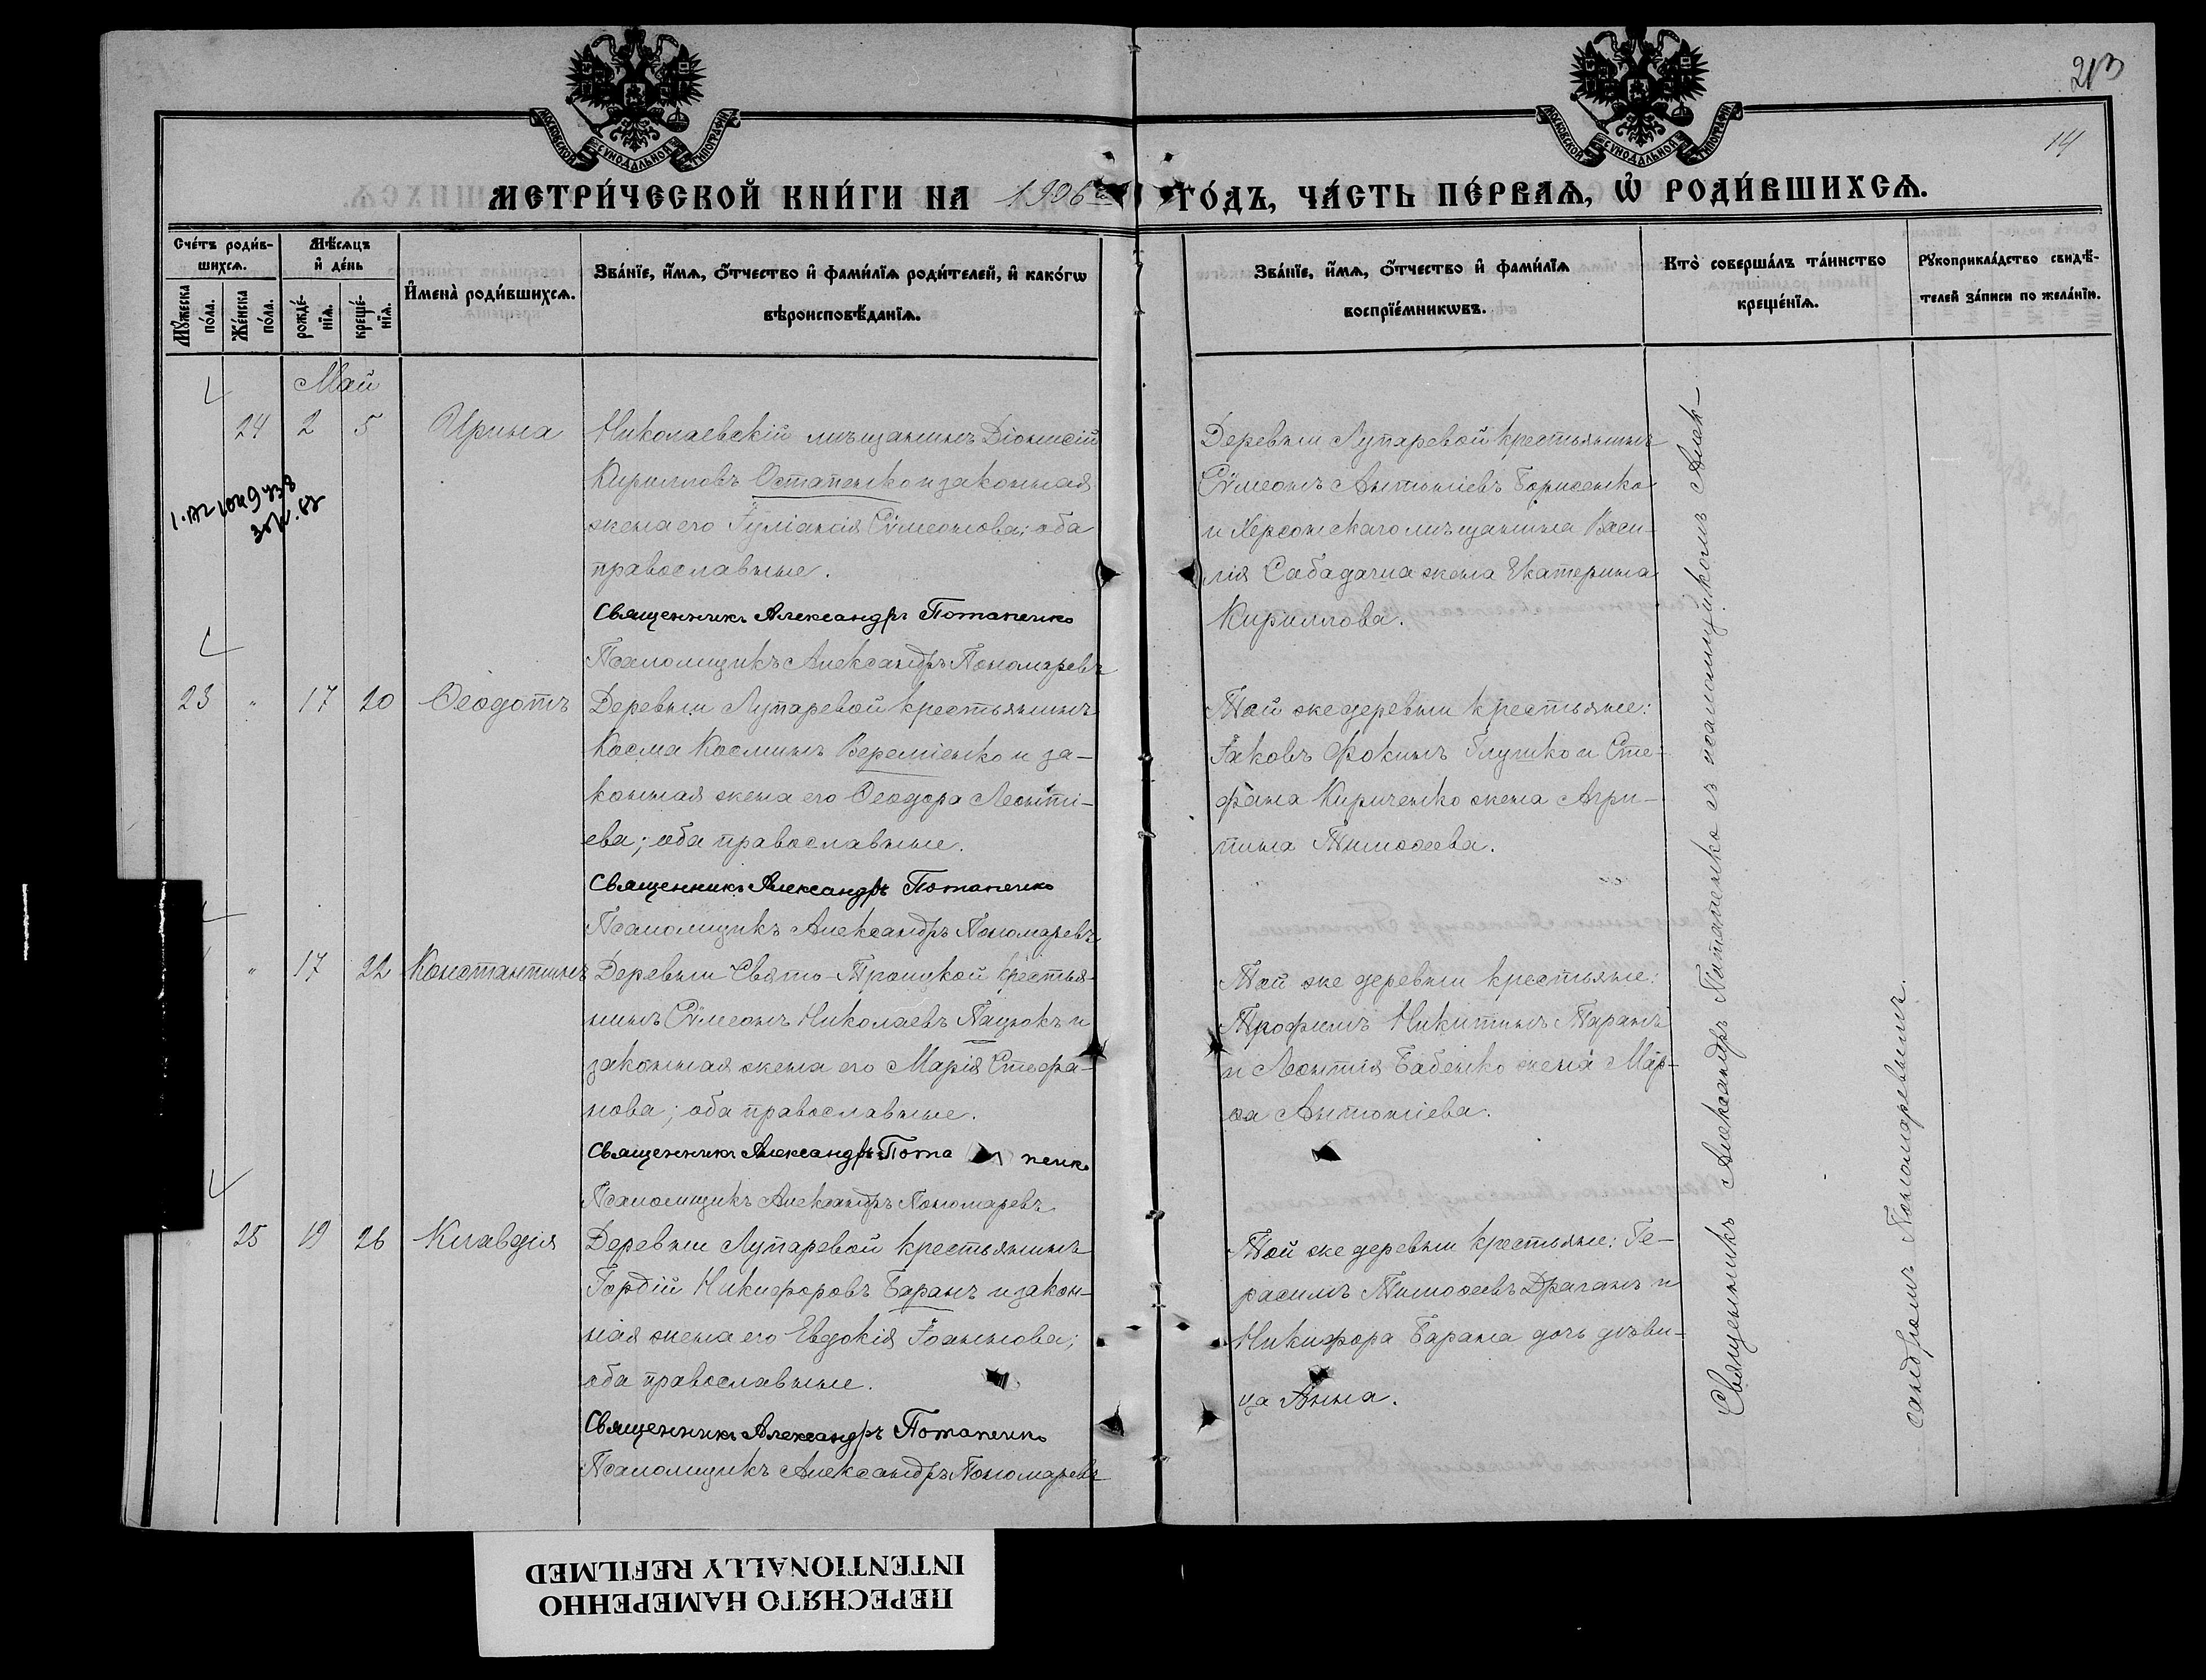 213
14
МОСКОВСКОЙ СѴНОДАЛЬНОЙ ТИПОГРАФІИ
МОСКОВСКОЙ СѴНОДАЛЬНОЙ ТИПОГРАФІИ
МЕТРИ́ЧЕСКОЙ КНИ́ГИ НА 1906 ГО́ДЪ, ЧА́СТЬ ПЕ́РВАѦ, Ѡ҆ РОДИ́ВШИХСѦ.
Сче́тъ роди́в-
шихсѧ.
Мꙋ́жеска по́ла.
Же́нска по́ла.
Мѣ́сѧцъ
и҆ де́нь
рожде́-
нїѧ.
креще́-
нїѧ.
И҆мена̀ роди́вшихсѧ.
Зва́нїе, и҆́мѧ, ѻ҆́тчество и҆ фами́лїѧ роди́телей, и҆ како́гѡ
вѣроисповѣ́данїѧ.
Зва́нїе, и҆́мѧ, ѻ҆́тчество и҆ фами́лїѧ
воспрїе́мникѡвъ.
Кто̀ соверша́лъ та́инство
креще́нїѧ.
Рꙋкоприкла́дство свидѣ́-
телей за́писи по жела́нїю.
Май
24 2 5 Ирина
Николаевскій мѣщанинъ Діонисій
Кирилловъ Остапенко и законная
жена его Іуліанія Сѵмеонова; оба
православные.
Священникъ Александръ Потапенко
Псаломщикъ Александръ Пономаревъ
Деревни Лупаревой крестьянинъ
Сѵмеонъ Антоніевъ Борисенко
и Херсонскаго мѣщанина Васи-
лія Сабадаша жена Екатерина
Кириллова.
23 " 17 20 Ѳеодотъ
Деревни Лупаревой крестьянинъ
Косма Косминъ Вереміенко и за-
конная жена его Ѳеодора Леонті-
ева; оба православные.
Священникъ Александръ Потапенко
Псаломщикъ Александръ Пономаревъ
Той же деревни крестьяне:
Іаковъ Фокинъ Глушко и Сте-
фана Кириченко жена Агри-
пина Тимоѳеева.
" 17 22 Константинъ
Деревни Свято-Троицкой крестья-
нинъ Сѵмеонъ Николаевъ Пацюкъ и
законная жена его Марія Стефа-
нова; оба православные.
Священникъ Александръ Пота пенко
Псаломщикъ Александръ Пономаревъ
Той же деревни крестьяне:
Трофимъ Никитинъ Таранъ
и Леонтія Бабенко жена Мар-
ѳа Антоніева.
25 19 26 Клавдія
Деревни Лупаревой крестьянинъ
Гордій Никифоровъ Баранъ и закон-
ная жена его Евдокія Іоаннова;
оба православные.
Священникъ Александръ Потапенко
Псаломщикъ Александръ Пономаревъ
Той же деревни крестьяне: Ге-
расимъ Тимоѳеевъ Драганъ и
Никифора Барана дочь дѣви-
ца Анна.
Священникъ Александръ Потапенко съ псаломщикомъ Алек-
сандромъ Пономаревымъ.
ПЕРЕСНЯТО НАМЕРЕННО
INTENTIONALLY REFILMED